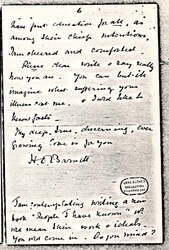 6
just education for all, as
among their chief intentions,
I am cheered and comforted.
Please dear write & say really
how you are. You can but-ill
imagine what suffering your
illness cost me. & I would like to
know facts.
My deep, true, deserving, ever
growing love is for you
H O Barnett
I am contemplating writing a new
book. "People I have known". It
will mean their work & ideals.
You will come in. Do you mind?